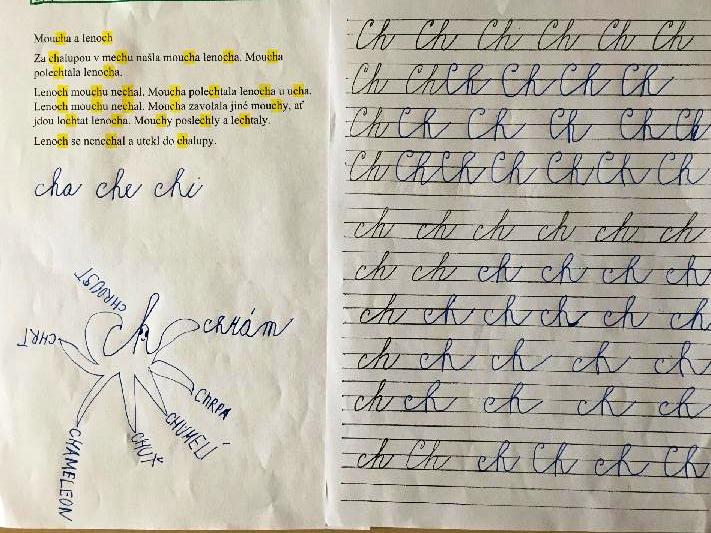 Moucha a lenoch
Za chalupou v mechu našla moucha lenocha. Moucha
polechtala lenocha.
Lenoch mouchu nechal. Moucha polechtala lenocha u ucha.
Lenoch mouchu nechal. Moucha zavolala jiné mouchy, ať
jdou lochtat lenocha. Mouchy poslechly a lechtaly.
Lenoch se nenechal a utekl do chalupy.
cha che chi
CHROUST
ch
chrám
CHRT
CHRPA
CHUMELÍ
CHUŤ
CHAMELEON
Ch Ch Ch Ch Ch Ch
Ch Ch Ch Ch Ch Ch
Ch Ch Ch Ch Ch Ch
Ch Ch Ch Ch Ch Ch Ch
ch ch ch ch ch ch
ch ch ch ch ch ch
ch ch ch ch ch ch
ch ch ch ch ch
ch ch ch ch ch
ch Ch ch Ch ch Ch